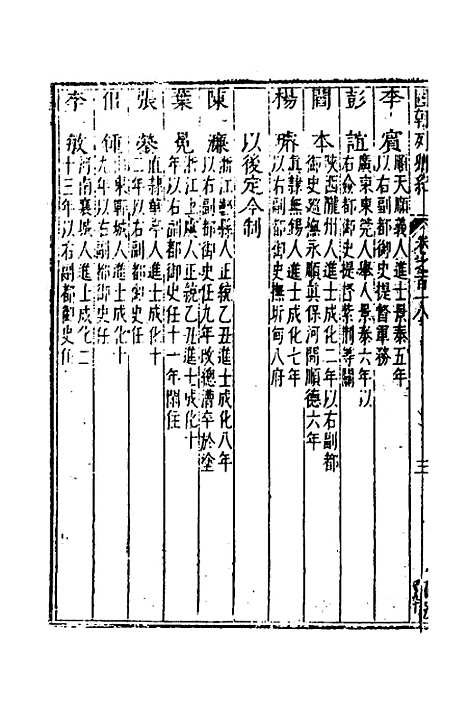 李賓順天順義人進士景泰五年
以右副都御史提督軍務
彭誼廣東東莞人舉人景泰六年以
右僉都御史提督紫荆等關
閻本陝西醴州人進士成化二年以右副都
御史巡撫永順真保河間順德六年
楊璿直隸無錫人進士成化七年
以右副都御史撫圻甸八府
以後定今制
陳濂浙江鄞縣人正統乙丑進士成化八年
以右副都御史任九年改總漕卒於塗
葉冕浙江上虞人正統乙丑進士成化十
年以右副都御史任十一年閑住
張鎣直隸華亭人進士成化十
二年以右副都御史任
侶鍾山東鄆城人進士成化十
九年以右副都御史任
李敏河南襄城人進士成化二
十三年以右副都御史任
三